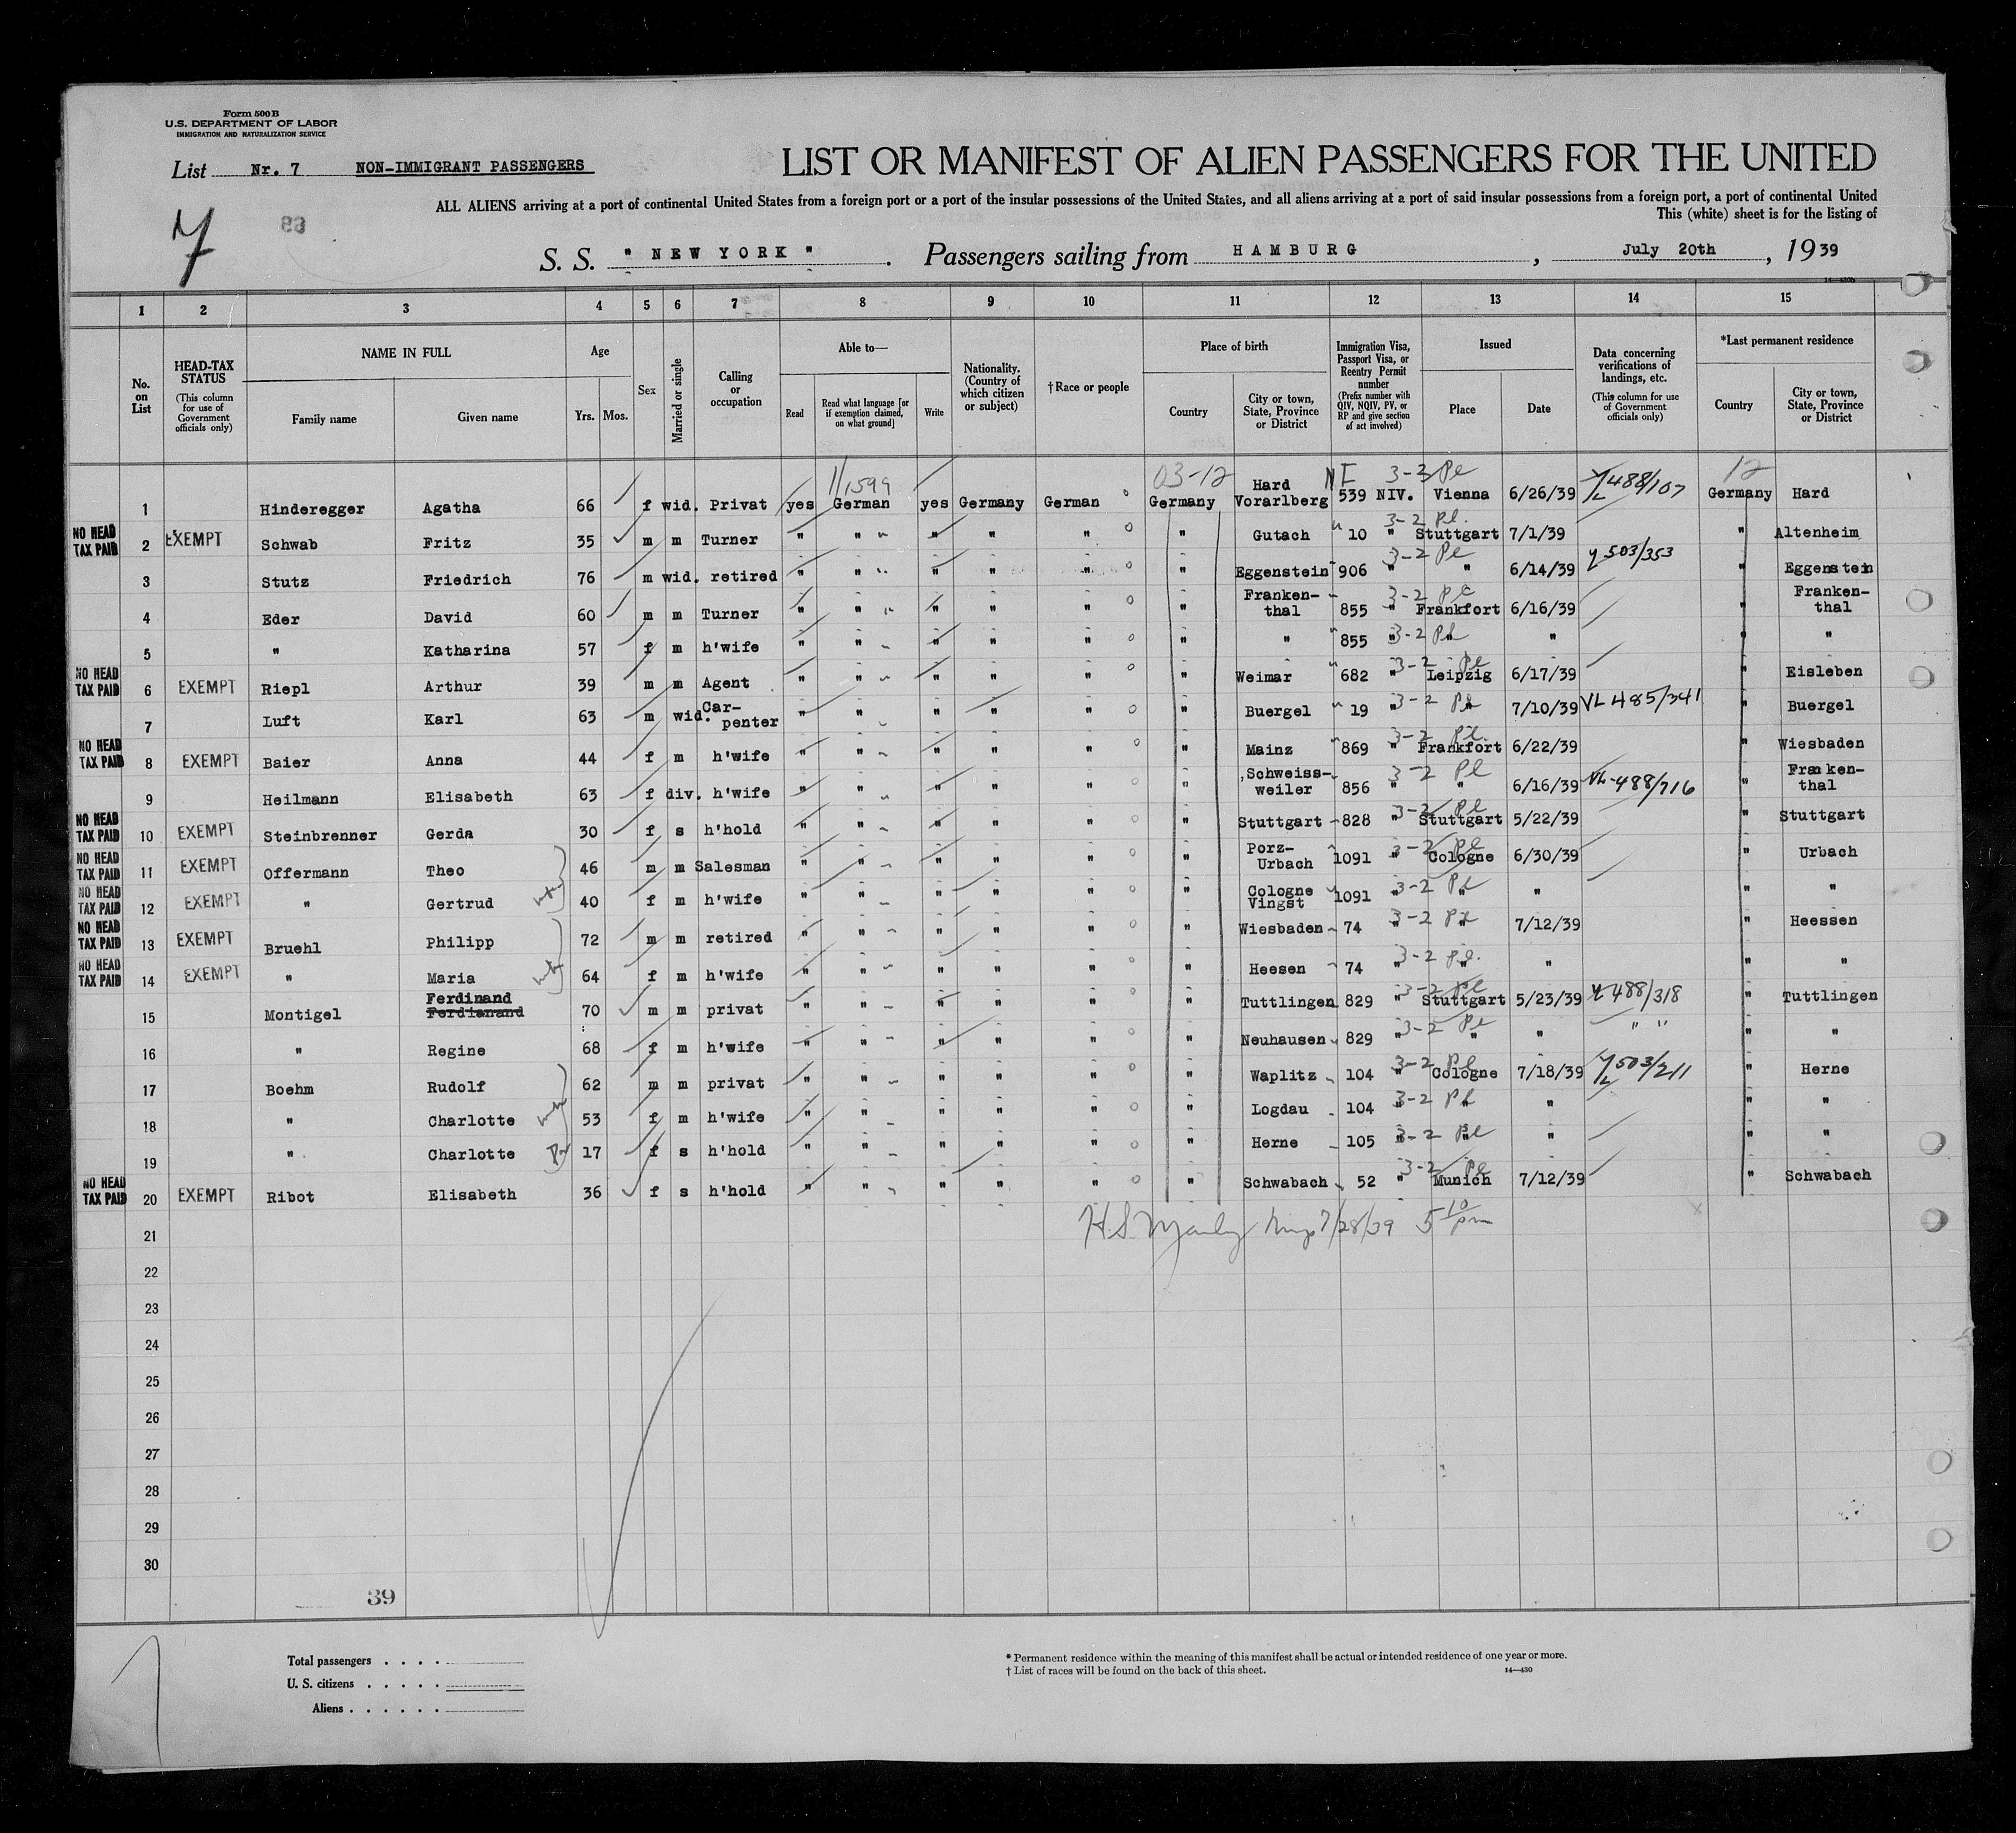 Form 500 B
U.S. DEPARTMENT OF LABOR
IMMIGRATION AND NATURALIZATION SERVICE
List Nr. 7 NON-IMMIGRANT PASSENGERS
LIST OR MANIFEST OF ALIEN PASSENGERS FOR THE UNITED
ALL ALIENS arriving at a port of continental United States from a foreign port or a port of the insular possessions of the United States, and all aliens arriving at a port of said insular possessions from a foreign port, a port of continental United
This (white) sheet is for the listing of
7
S. S. " NEW YORK " . Passengers sailing from HAMBURG , July 20th , 19 39
1 2 3 4 5 6 7 8 9 10 11 12 13 14 15
No. on List
HEAD-TAX STATUS (This column for use of Government officials only)
NAME IN FULL
Family name
Given name
Age
Yrs. Mos.
Sex
Married or single
Calling or occupation
Able to—
Read
Read what language [or if exemption claimed, on what ground]
Write
Nationality. (Country of which citizen or subject)
†Race or people
Place of birth
Country
City or town, State, Province or District
Immigration Visa, Passport Visa, or Reentry Permit number (Prefix number with QIV, NQIV, PV, or RP and give section of act involved)
Issued
Place
Date
Data concerning verifications of landings, etc. (This column for use of Government officials only)
*Last permanent residence
Country
City or town, State, Province or District
1/1599 03-12 3-3 Pl 12
1 Hinderegger Agatha 66 f wid. Privat yes German yes Germany German Germany Hard Vorarlberg 539 NIV. Vienna 6/26/39 488/107 Germany Hard
NO HEAD TAX PAID 2 EXEMPT Schwab Fritz 35 m m Turner " " " " " " Gutach 10 " 3-2 Pl. Stuttgart 7/1/39 " Altenheim
3 Stutz Friedrich 76 m wid. retired " " " " " " Eggenstein 906 " 3-2 Pl " 6/14/39 503/353 " Eggenstein
4 Eder David 60 m m Turner " " " " " " Franken-thal 855 " 3-2 Pl Frankfort 6/16/39 " Franken-thal
5 " Katharina 57 f m h'wife " " " " " " " 855 " 3-2 Pl " " " "
NO HEAD TAX PAID 6 EXEMPT Riepl Arthur 39 m m Agent " " " " " " Weimar 682 " 3-2 Pl Leipzig 6/17/39 " Eisleben
7 Luft Karl 63 m wid. Car-penter " " " " " " Buergel 19 " 3-2 Pl " 7/10/39 VL 485/341 " Buergel
NO HEAD TAX PAID 8 EXEMPT Baier Anna 44 f m h'wife " " " " " " Mainz 869 " 3-2 Pl. Frankfort 6/22/39 " Wiesbaden
9 Heilmann Elisabeth 63 f div. h'wife " " " " " " Schweiss-weiler 856 " 3-2 Pl " 6/16/39 VL-488/716 " Franken-thal
NO HEAD TAX PAID 10 EXEMPT Steinbrenner Gerda 30 f s h'hold " " " " " " Stuttgart 828 " 3-2 Pl Stuttgart 5/22/39 " Stuttgart
NO HEAD TAX PAID 11 EXEMPT Offermann Theo 46 m m Salesman " " " " " " Porz-Urbach 1091 " 3-2 Pl Cologne 6/30/39 " Urbach
NO HEAD TAX PAID 12 EXEMPT " Gertrud 40 f m h'wife " " " " " " Cologne Vingst 1091 " 3-2 Pl " " " "
NO HEAD TAX PAID 13 EXEMPT Bruehl Philipp 72 m m retired " " " " " " Wiesbaden 74 " 3-2 Pl " 7/12/39 " Heessen
NO HEAD TAX PAID 14 EXEMPT " Maria 64 f m h'wife " " " " " " Heesen 74 " 3-2 Pl. " " " "
15 Montigel Ferdinand Ferdianand 70 m m privat " " " " " " Tuttlingen 829 " 3-2 Pl Stuttgart 5/23/39 488/318 " Tuttlingen
16 " Regine 68 f m h'wife " " " " " " Neuhausen 829 " 3-2 Pl " " " " " "
17 Boehm Rudolf 62 m m privat " " " " " " Waplitz 104 " 3-2 Pl Cologne 7/18/39 503/211 " Herne
18 " Charlotte 53 f m h'wife " " " " " " Logdau 104 " 3-2 Pl " " " "
19 " Charlotte 17 f s h'hold " " " " " " Herne 105 " 3-2 Pl " " " "
NO HEAD TAX PAID 20 EXEMPT Ribot Elisabeth 36 f s h'hold " " " " " " Schwabach 52 " 3-2 Pl Munich 7/12/39 " Schwabach
21 7/28/39 5 10 pm
22
23
24
25
26
27
28
29
30
39
Total passengers . . . .
U. S. citizens . . . . .
Aliens . . . . . .
* Permanent residence within the meaning of this manifest shall be actual or intended residence of one year or more.
† List of races will be found on the back of this sheet. 14—430